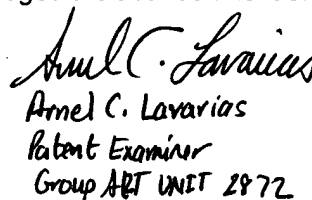 Arnel C. Lavarias
Arnel C. Lavarias
Patent Examiner
Group ART UNIT 2872